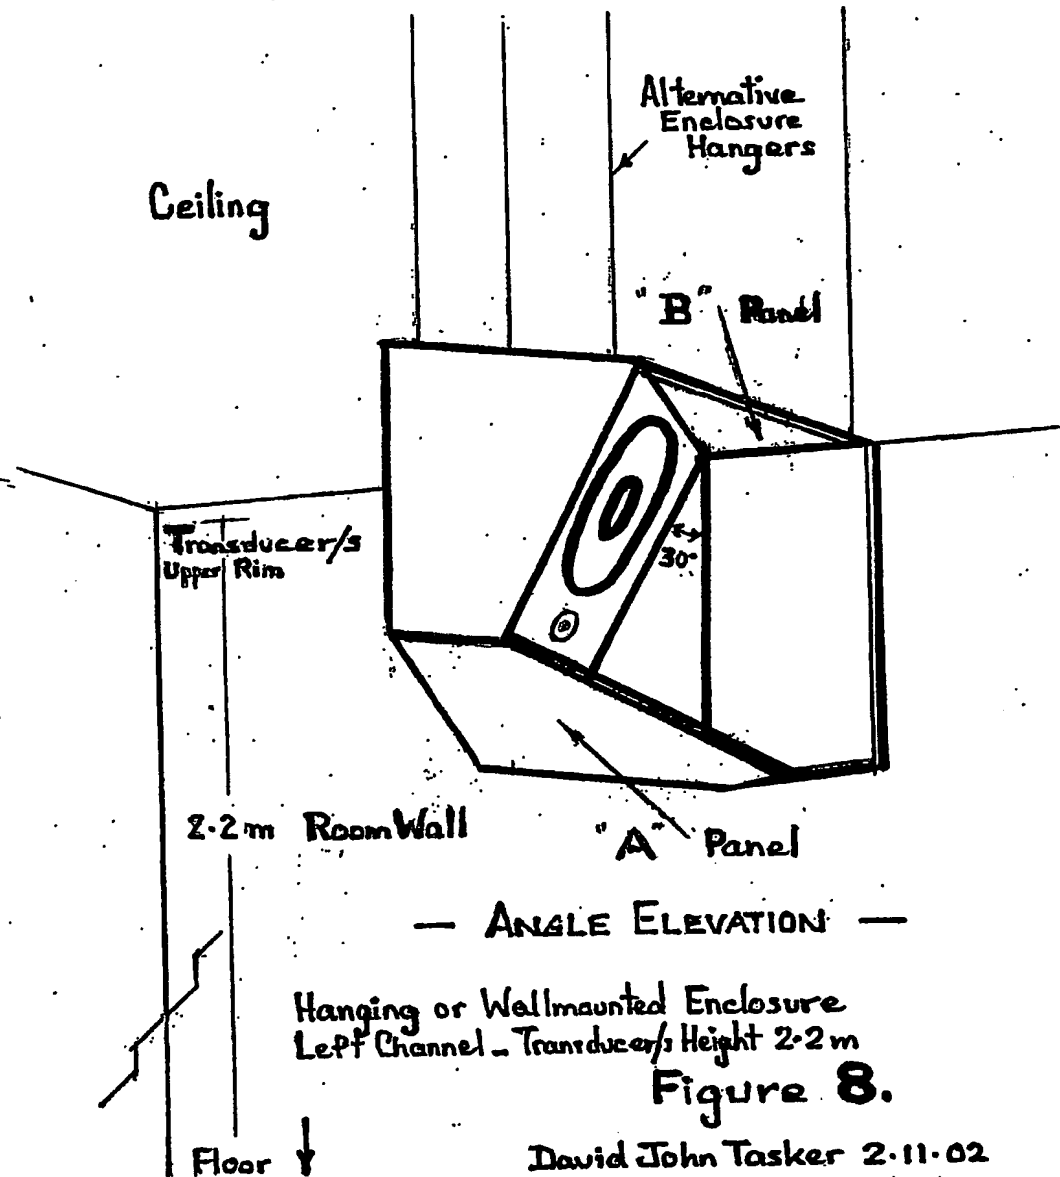 Alternative
Enclosure
Hangers
Ceiling
"B" Panel
Transducer/s
Upper Rim
30°
2.2m Room Wall
"A" Panel
— ANGLE ELEVATION —
Hanging or Wallmounted Enclosure
Left Channel - Transducer/s Height 2.2m
Figure 8.
Floor
David John Tasker 2.11.02